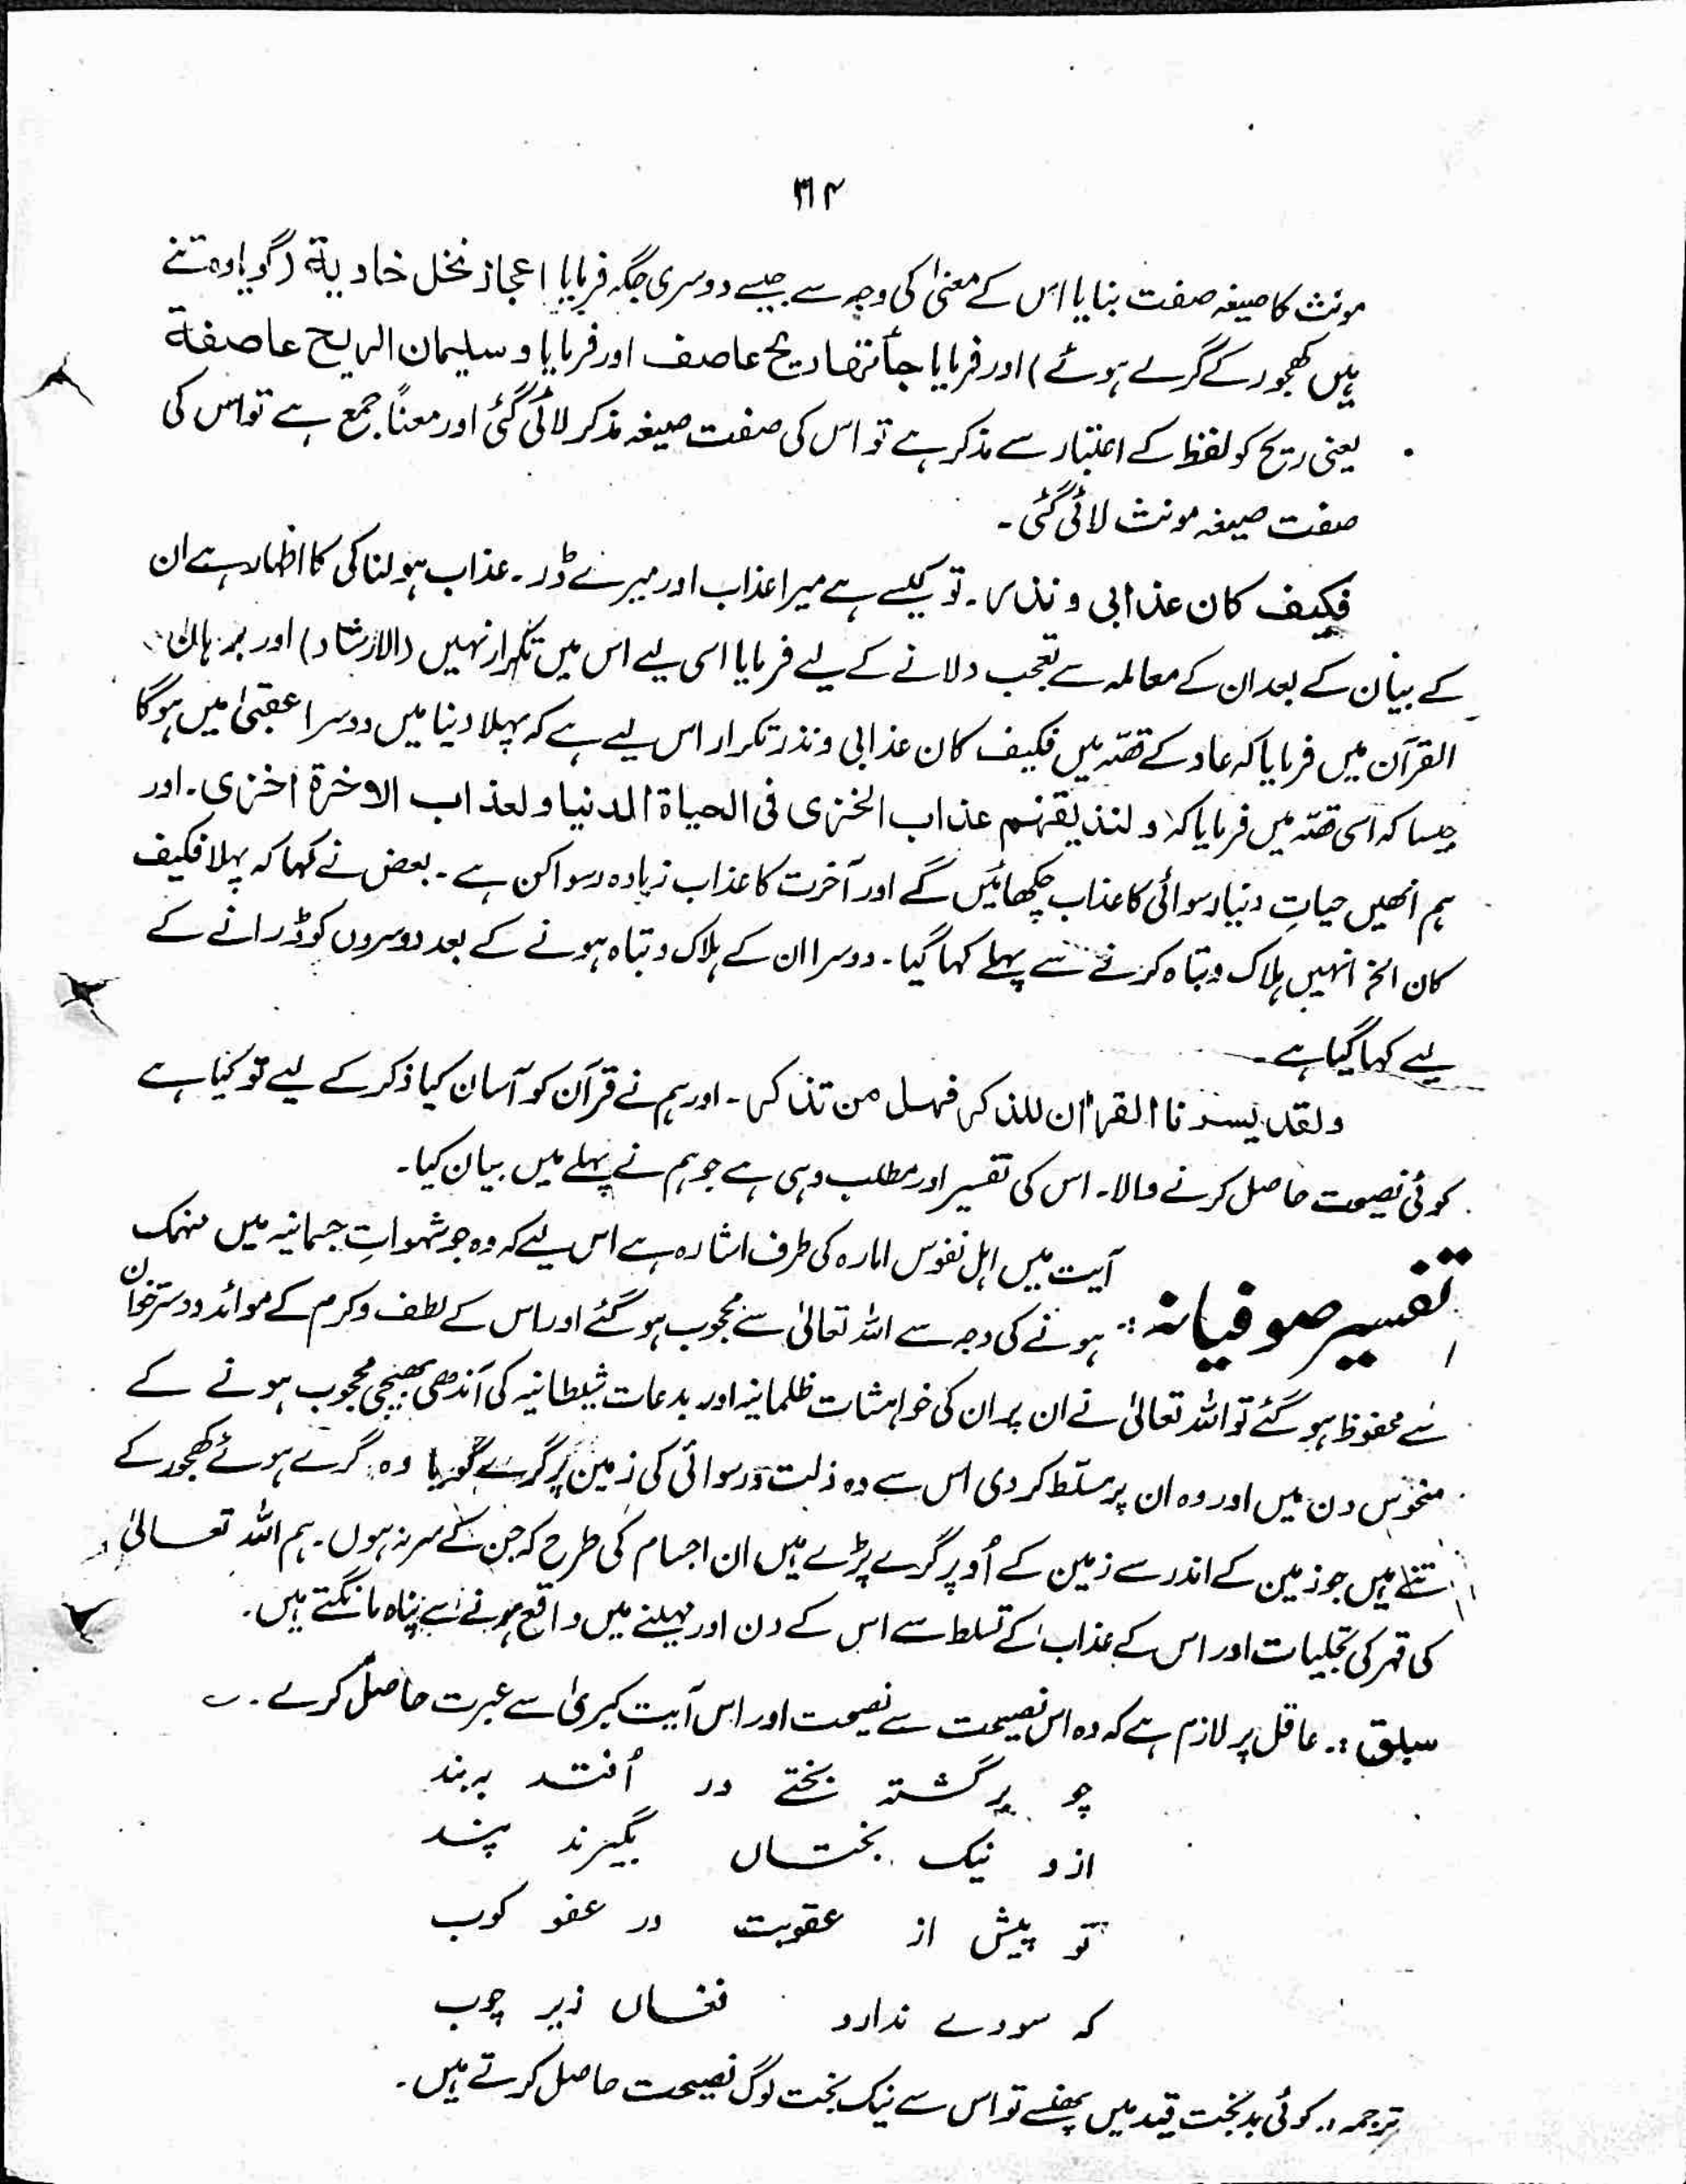 ۳۱۴
مونث کا صیغہ صفت بنایا اس کے معنیٰ کی وجہ سے جیسے دوسری جگہ فرمایا اعجاز نخل خاویة (گویا وہ تنے
ہیں کھجور کے گرے ہوئے) اور فرمایا جأتھا ریح عاصف اور فرمایا و سلیمان الریح عاصفة
یعنی ریح کو لفظ کے اعتبار سے مذکر ہے تو اس کی صفت صیغہ مذکر لائی گئی اور معناً جمع ہے تو اس کی
صفت صیغہ مونث لائی گئی ۔
فکیف کان عذابی و نذر ۔ تو کیسے ہے میرا عذاب اور میرے ڈر ۔ عذاب ہولناکی کا اظہار ہے ان
کے بیان کے بعد ان کے معاملہ سے تعجب دلانے کے لیے فرمایا اسی لیے اس میں تکرار نہیں (الارشاد) اور برہان
القرآن میں فرمایا کہ عاد کے قصّہ میں فکیف کان عذابی ونذر تکرار اس لیے ہے کہ پہلا دنیا میں دوسرا عقبیٰ میں ہوگا
جیسا کہ اسی قصّہ میں فرمایا کہ ولنذیقنھم عذاب الخزی فی الحیاة الدنیا ولعذاب الاخرة اخزی ۔ اور
ہم انھیں حیاتِ دنیا رسوائی کا عذاب چکھائیں گے اور آخرت کا عذاب زیادہ رسواکن ہے ۔ بعض نے کہا کہ پہلا فکیف
کان الخ انہیں ہلاک و تباہ کرنے سے پہلے کہا گیا ۔ دوسرا ان کے ہلاک و تباہ ہونے کے بعد دوسروں کو ڈرانے کے
لیے کہا گیا ہے ۔
ولقد یسرنا القراٰن للذکر فہل من تذکر ۔ اور ہم نے قرآن کو آسان کیا ذکر کے لیے تو کیا ہے
کوئی نصیحت حاصل کرنے والا ۔ اس کی تفسیر اور مطلب وہی ہے جو ہم نے پہلے میں بیان کیا ۔
آیت میں اہل نفوس امارہ کی طرف اشارہ ہے اس لیے کہ وہ جو شہواتِ جسمانیہ میں منہمک
تفسیر صوفیانہ : ہونے کی وجہ سے اللہ تعالیٰ سے محجوب ہو گئے اور اس کے لطف وکرم کے موائد ودسترخوان
سے محفوظ ہو گئے تو اللہ تعالیٰ نے ان پر ان کی خواہشات ظلمانیہ اور بدعات شیطانیہ کی آندھی بھیجی محجوب ہونے کے
منحوس دن میں اور وہ ان پر مسلّط کر دی اس سے وہ ذلت ورسوائی کی زمین پر گرے گویا وہ گرے ہوئے کھجور کے
تنے ہیں جو زمین کے اندر سے زمین کے اُوپر گرے پڑے ہیں ان اجسام کی طرح کہ جن کے سر نہ ہوں ۔ ہم اللہ تعالیٰ
کی قہر کی تجلیات اور اس کے عذاب کے تسلط سے اس کے دن اور مہینے میں واقع ہونے سے پناہ مانگتے ہیں ۔
سبق : ۔ عاقل پر لازم ہے کہ وہ اس نصیحت سے نصیحت اور اس آیت کبریٰ سے عبرت حاصل کرے ۔ ؎
چو برگشتہ بختے در اُفتد بہ بند
ازو نیک بختاں بگیرند پند
تو پیش از عقوبت در عفو کوب
کہ سودے ندارد فغاں زیر چوب
ترجمہ : ۔ کوئی بدبخت قید میں پھنسے تو اس سے نیک بخت لوگ نصیحت حاصل کرتے ہیں ۔